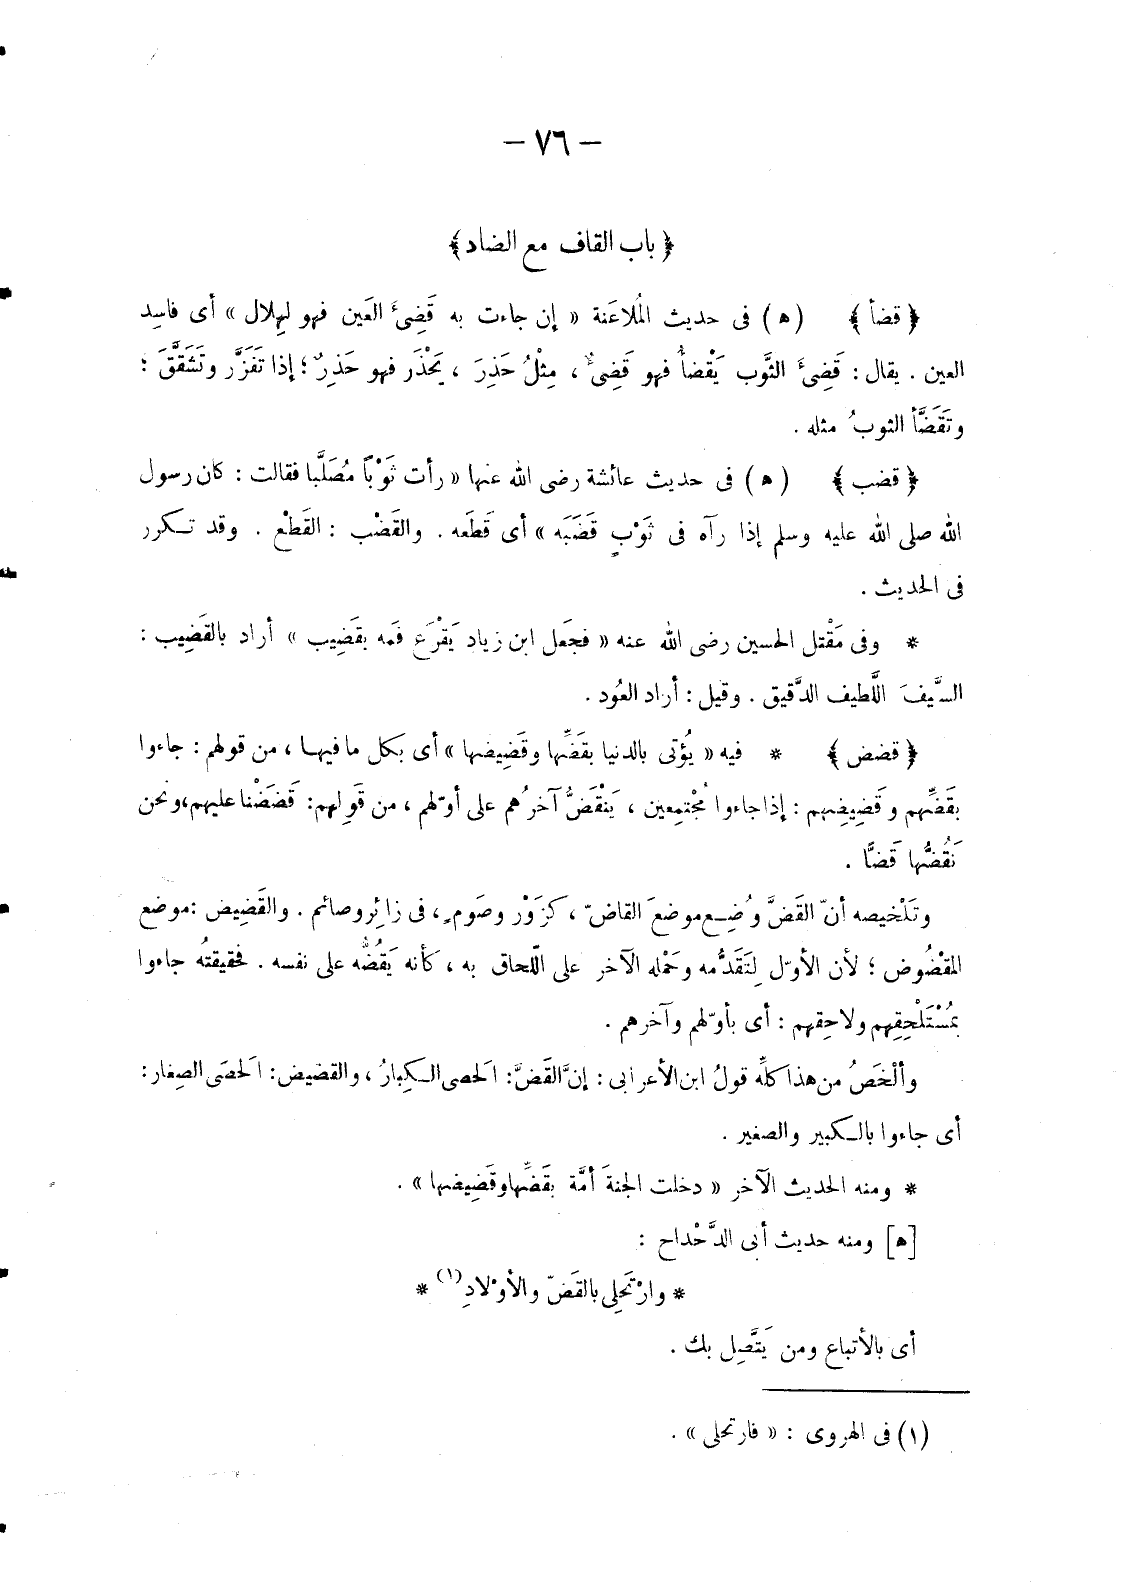 — ٧٦ —
﴿ باب القاف مع الضاد ﴾
﴿ قضأ ﴾ (ه) فى حديث المُلاعَنة « إن جاءت به قَضِئَ العَين فهو لِهِلال » أى فاسِد
العين . يقال : قَضِئَ الثَّوب يَقْضأُ فهو قَضِىٌ ، مِثْلُ حَذِرَ ، يَحْذَر فهو حَذِرٌ ؛ إذا تَفَزَّر وتَشَقَّقَ ؛
وتَقَضَّأ الثوبُ مثله .
﴿ قضب ﴾ (ه) فى حديث عائشة رضى الله عنها « رأت ثَوْباً مُصَلَّبا فقالت : كان رسول
الله صلى الله عليه وسلم إذا رآه فى ثَوْبٍ قَضَبَه » أى قَطَعه . والقَضْب : القَطْع . وقد تكرر
فى الحديث .
* وفى مَقْتل الحسين رضى الله عنه « فجَعل ابن زياد يَقْرَع فَمه بقَضِيب » أراد بالقَضِيب :
السَّيفَ اللَّطيف الدَّقيق . وقيل : أراد العُود .
﴿ قضض ﴾ * فيه « يُؤتى بالدنيا بقَضِّها وقَضِيضها » أى بكل ما فيها ، من قولهم : جاءوا
بقَضِّهم وقَضِيضِهم : إذا جاءوا مُجْتمِعين ، يَنْقَضُّ آخرُهم على أوّلهم ، من قَولِهم : قَضَضْنا عليهم ، ونحن
نَقُضُّها قَضًّا .
وتَلْخيصه أنّ القَضَّ وُضِع موضعَ القاضّ ، كزَوْر وصَوم ، فى زائِر وصائم . والقَضِيض : موضع
المَقْضُوض ؛ لأن الأوّل لِتَقَدُّمه وحَمْله الآخر على اللّحاق به ، كأنه يَقُضُّه على نفسه . فحقيقتهُ جاءوا
بمُسْتَلْحِقِهم ولاحِقِهم : أى بأوّلهم وآخرهم .
وألْخَصُ من هذا كلِّه قولُ ابن الأعرابى : إنَّ القَضَّ : الحصى الكِبارُ ، والقضيض : الحصَى الصِغار :
أى جاءوا بالكبير والصغير .
* ومنه الحديث الآخر « دخلت الجنةَ أمَّة بقَضِّها وقَضِيضها » .
[ه] ومنه حديث أبى الدَّحْداح :
* وارْتَحِلى بالقَضّ والأوْلادِ (١) *
أى بالأتباع ومن يَتَّصِل بك .
(١) فى الهروى : « فارتحلى » .